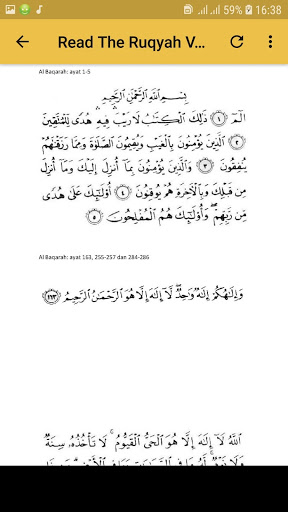 59% 16:38
Read The Ruqyah V...
Al Baqarah: ayat 1-5
بِسْمِ اللَّهِ الرَّحْمَٰنِ الرَّحِيمِ
الٓمٓ ۝١ ذَٰلِكَ الْكِتَٰبُ لَا رَيْبَ ۛ فِيهِ ۛ هُدًى لِّلْمُتَّقِينَ
۝٢ الَّذِينَ يُؤْمِنُونَ بِالْغَيْبِ وَيُقِيمُونَ الصَّلَوٰةَ وَمِمَّا رَزَقْنَٰهُمْ
يُنفِقُونَ ۝٣ وَالَّذِينَ يُؤْمِنُونَ بِمَآ أُنزِلَ إِلَيْكَ وَمَآ أُنزِلَ
مِن قَبْلِكَ وَبِالْءَاخِرَةِ هُمْ يُوقِنُونَ ۝٤ أُو۟لَٰٓئِكَ عَلَىٰ هُدًى
مِّن رَّبِّهِمْ ۖ وَأُو۟لَٰٓئِكَ هُمُ الْمُفْلِحُونَ ۝٥
Al Baqarah: ayat 163, 255-257 dan 284-286
وَإِلَٰهُكُمْ إِلَٰهٌ وَٰحِدٌ ۖ لَّآ إِلَٰهَ إِلَّا هُوَ الرَّحْمَٰنُ الرَّحِيمُ ۝١٦٣
اللَّهُ لَآ إِلَٰهَ إِلَّا هُوَ الْحَىُّ الْقَيُّومُ ۚ لَا تَأْخُذُهُۥ سِنَةٌ
وَلَا نَوْمٌ ۚ لَّهُۥ مَا فِى السَّمَٰوَٰتِ وَمَا فِى الْأَرْضِ ۗ مَن